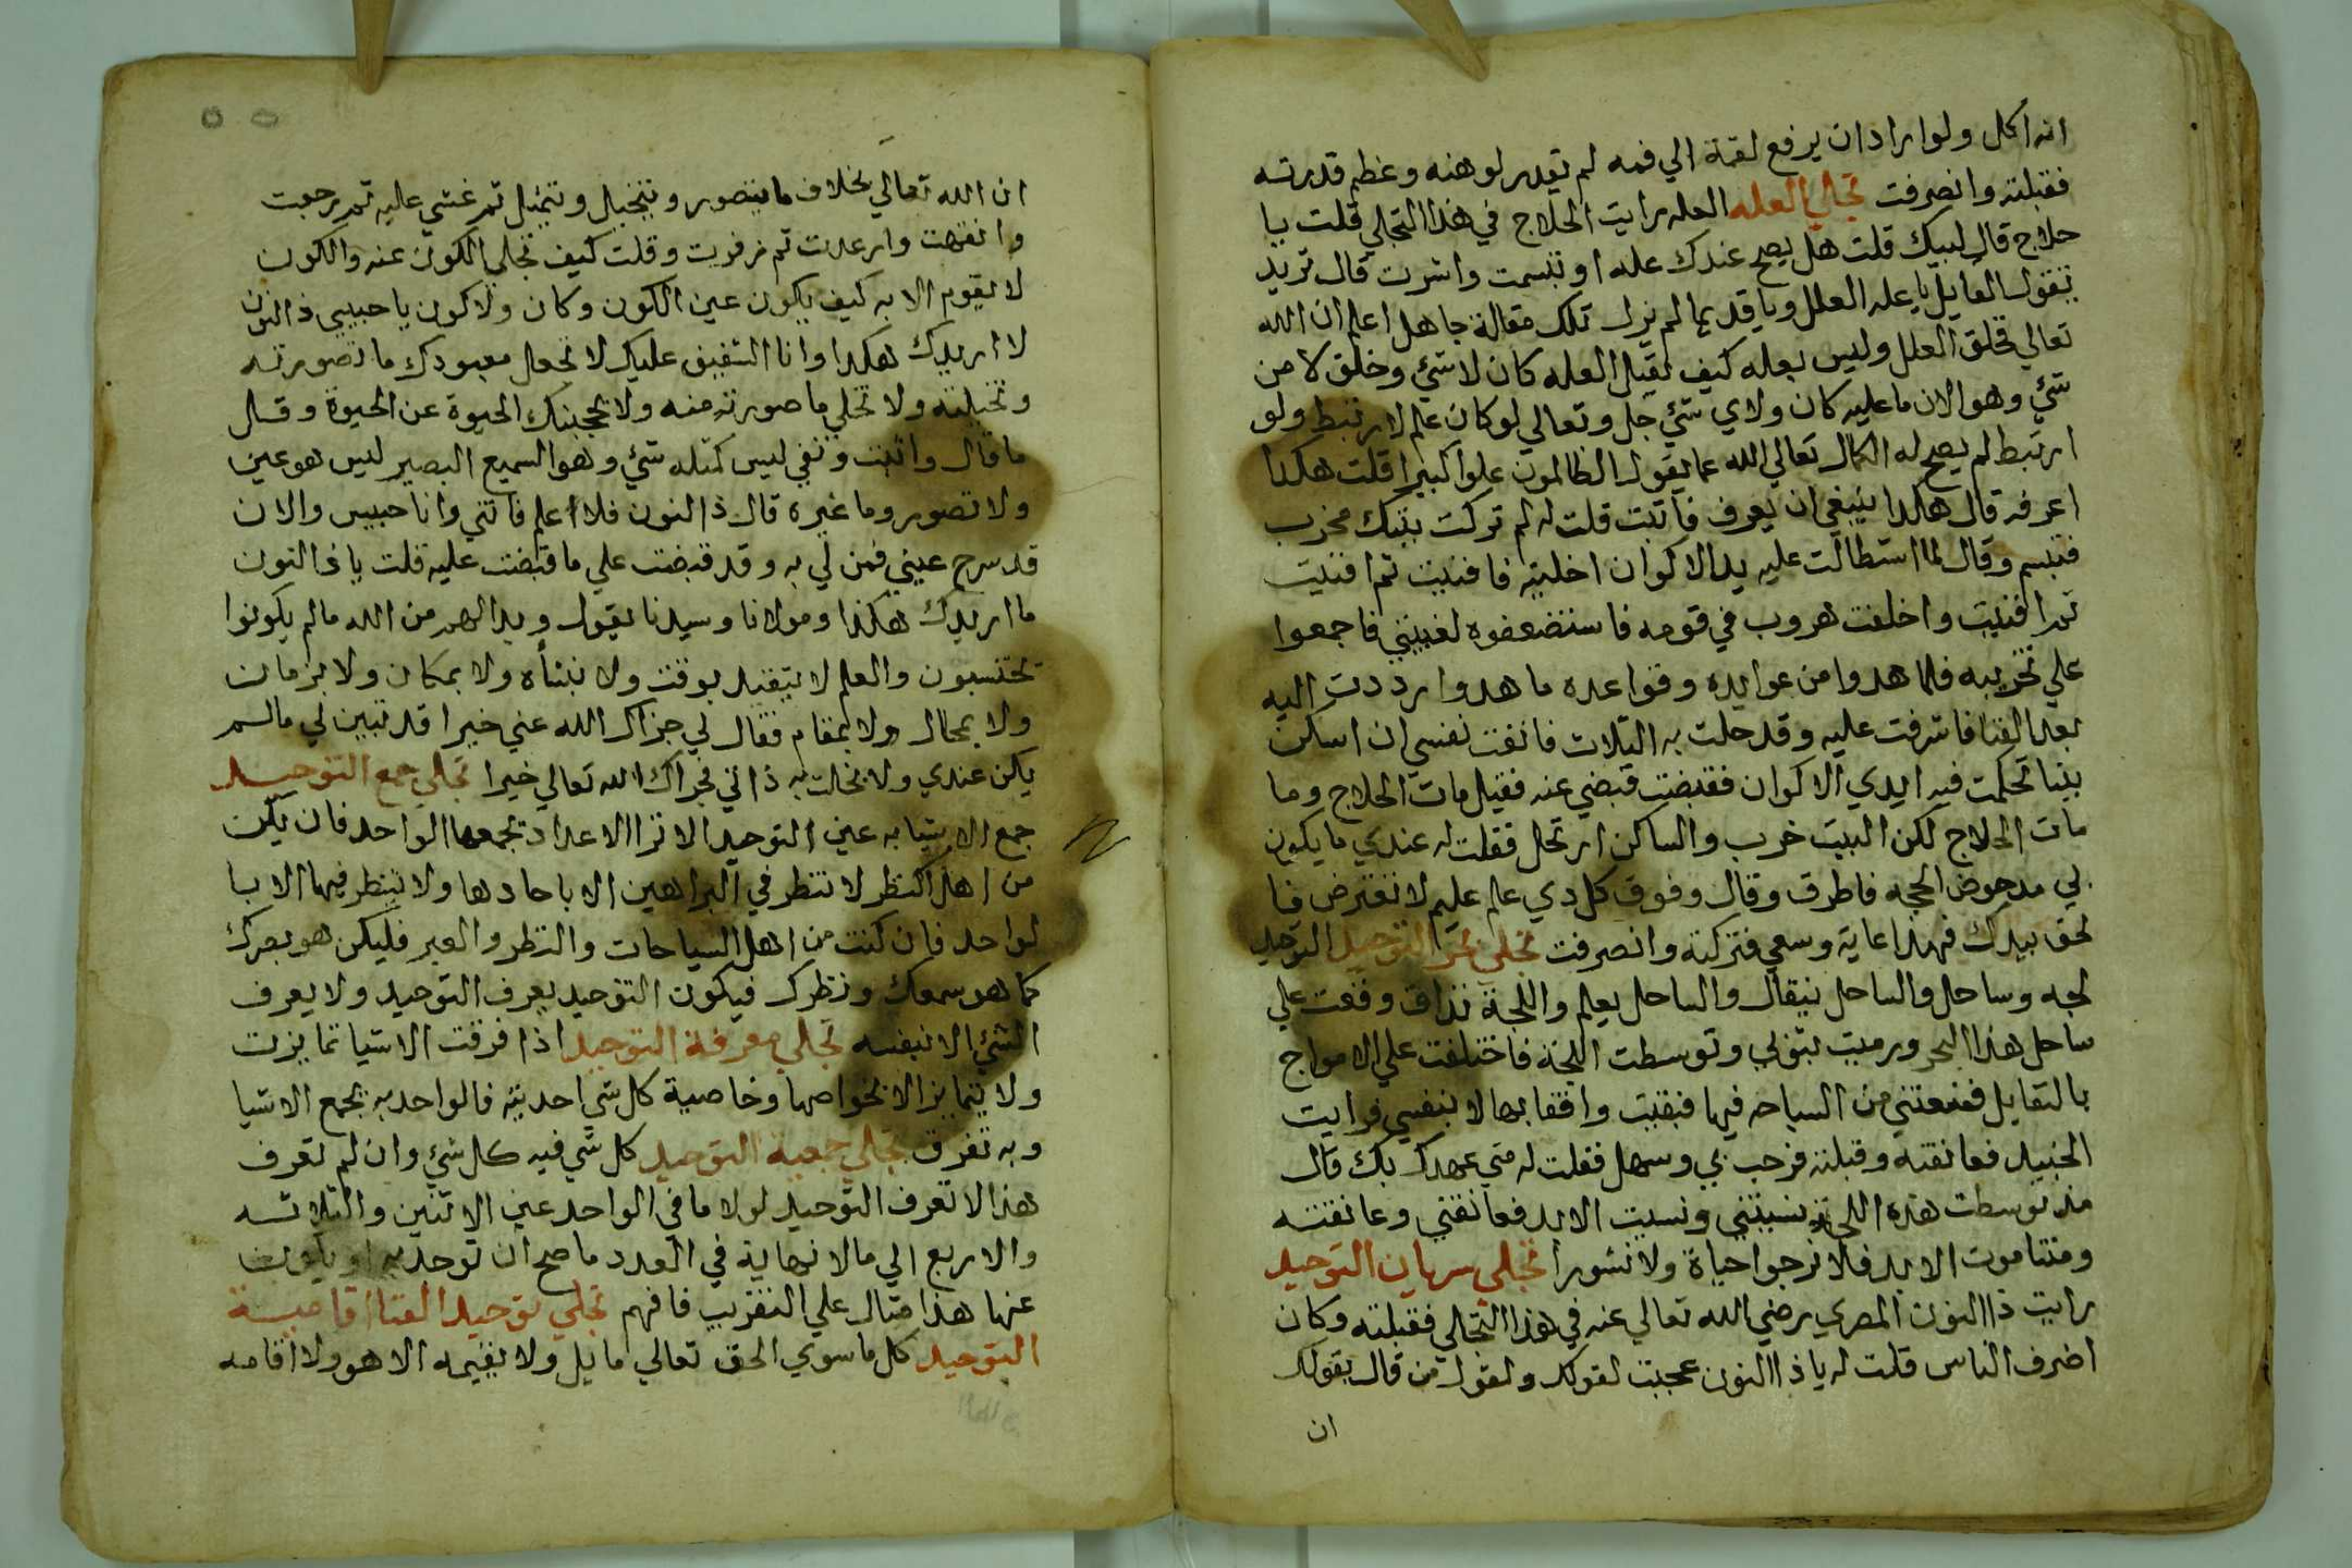 انه اكل ولو اراد ان يرفع لقمة الي فمه لم تقدر لوهنه وعظم قدرته
فقبلته وانصرفت تجلي العله العله رايت الحلاج في هذا التجلي قلت يا
حلاج قال لبيك قلت هل يصح عندك عله او تبسمت واشرت قال تريد
بقول القايل يا عله العلل ويا قديما لم يزل تلك مقالة جاهل اعلم ان الله
تعالي خلق العلل وليس بعله كيف يقبل العله كان لا شئي وخلق لا من
شئي وهو الان ما عليه كان ولا شئي جل وتعالي لو كان علم لارتبط ولو
ارتبط لم يصح له الكمال تعالي الله عما يقول الظالمون علوا كبيرا قلت هكذا
اعرفه قال هكذا ينبغي ان يعرف فاثبت قلت له لم تركت بيتك مخرب
فتبسم وقال لما استطالت عليه يد الاكوان اخليته فافنيت ثم افنيت
ثم افنيت واخلفت هروب في قومه فاستضعفوه لغيبتي فاجمعوا
علي تخريبه فلما هدوا من عوايده وقواعده ما هدوا رددت اليه
بعد الفنا فاشرفت عليه وقد حلت به التلات فانفت نفسي ان اسكن
بيتا تحكمت فيه ايدي الاكوان فقبضت قبضي عنه فقيل مات الحلاج وما
مات الحلاج لكن البيت خرب والساكن ارتحل فقلت له عندي ما يكون
لي مدحوض الحجه فاطرق وقال وفوق كل دي علم عليم لا تعترض فا
لحق بيدك فهذا غاية وسعي فتركته وانصرفت تجلي بحر التوحيد التوحيد
لجه وساحل والساحل ينقال والساحل يعلم واللجة تذاق وقفت علي
ساحل هذا البحر ورميت ثوبي وتوسطت اللجة فاختلفت علي الامواج
بالتقابل فمنعتني من السباحه فيها فبقيت واقفا بها لا بنفسي فرايت
الجنيد فعانقته وقبلته فرحب بي وسهل فقلت له متي عهدك بك قال
مذ توسطت هذه اللجة نسيتني ونسيت الابد فعانقني وعانقته
ومتنا موت الابد فلا نرجوا حياة ولا نشورا تجلي سريان التوحيد
رايت ذا النون المصري رضي الله تعالي عنه في هذا التجلي فقبلته وكان
اضرف الناس قلت له يا ذا النون عجبت لقولك ولقول من قال بقولك
ان
ان الله تعالي بخلاف ما يتصور ويتخيل ويتمثل ثم غشي عليه ثم رجعت
وانتبهت وارعدت ثم زفرت وقلت كيف تجلي الكون عنه والكون
لا يقوم الا به كيف يكون عين الكون وكان ولا كون يا حبيبي ذا النون
لا اريدك هكذا وانا الشفيق عليك لا تجعل معبودك ما تصورته
وتخيلته ولا تخلي ما صورته منه ولا تحجبنك الحيوة عن الحيوة وقال
ما قال واثبت ونفي ليس كمثله شئي وهو السميع البصير ليس هو عين
ولا تصور وما غيره قال ذا النون فلا اعلم فاتني وانا حبيس والان
قد سرح عيني فمن لي به وقد قبضت علي ما قبضت عليه قلت يا ذا النون
ما اريدك هكذا ومولانا وسيدنا يقول وبدا لهم من الله ما لم يكونوا
يحتسبون والعلم لا يتقيد بوقت ولا بنشأه ولا بمكان ولا بزمان
ولا بحال ولا بمقام فقال لي جزاك الله عني خيرا قد تبين لي مالم
يكن عندي ولا تحلت به ذاتي فجزاك الله تعالي خيرا تجلي جمع التوحيد
جمع الاشيا به عين التوحيد الا ترا الاعداد تجمعها الواحد فان يكن
من اهل النظر لا تنظر في البراهين الا باحادها ولا تنظر فيها الا با
لواحد فان كنت من اهل السياحات والنظر والعبر فليكن هو بصرك
كما هو سمعك ونظرك فيكون التوحيد يعرف التوحيد ولا يعرف
الشئي الا بنفسه تجلي معرفة التوحيد اذا فرقت الاشيا تمايزت
ولا يتمايز الا بخواصها وخاصية كل شي احديته فالواحد به تجمع الاشيا
وبه تفرق تجلي جمعية التوحيد كل شي فيه كل شئي وان لم تعرف
هذا لا تعرف التوحيد لولا ما في الواحد عين الاثنين والثلاثه
والاربع الي ما لا نهاية في العدد ما صح ان توحد به او يكون
عنها هذا مثال علي التقريب فافهم تجلي توحيد الفنا اقامية
التوحيد كل ما سوي الحق تعالي مايل ولا يقيمه الا هو ولا اقامه